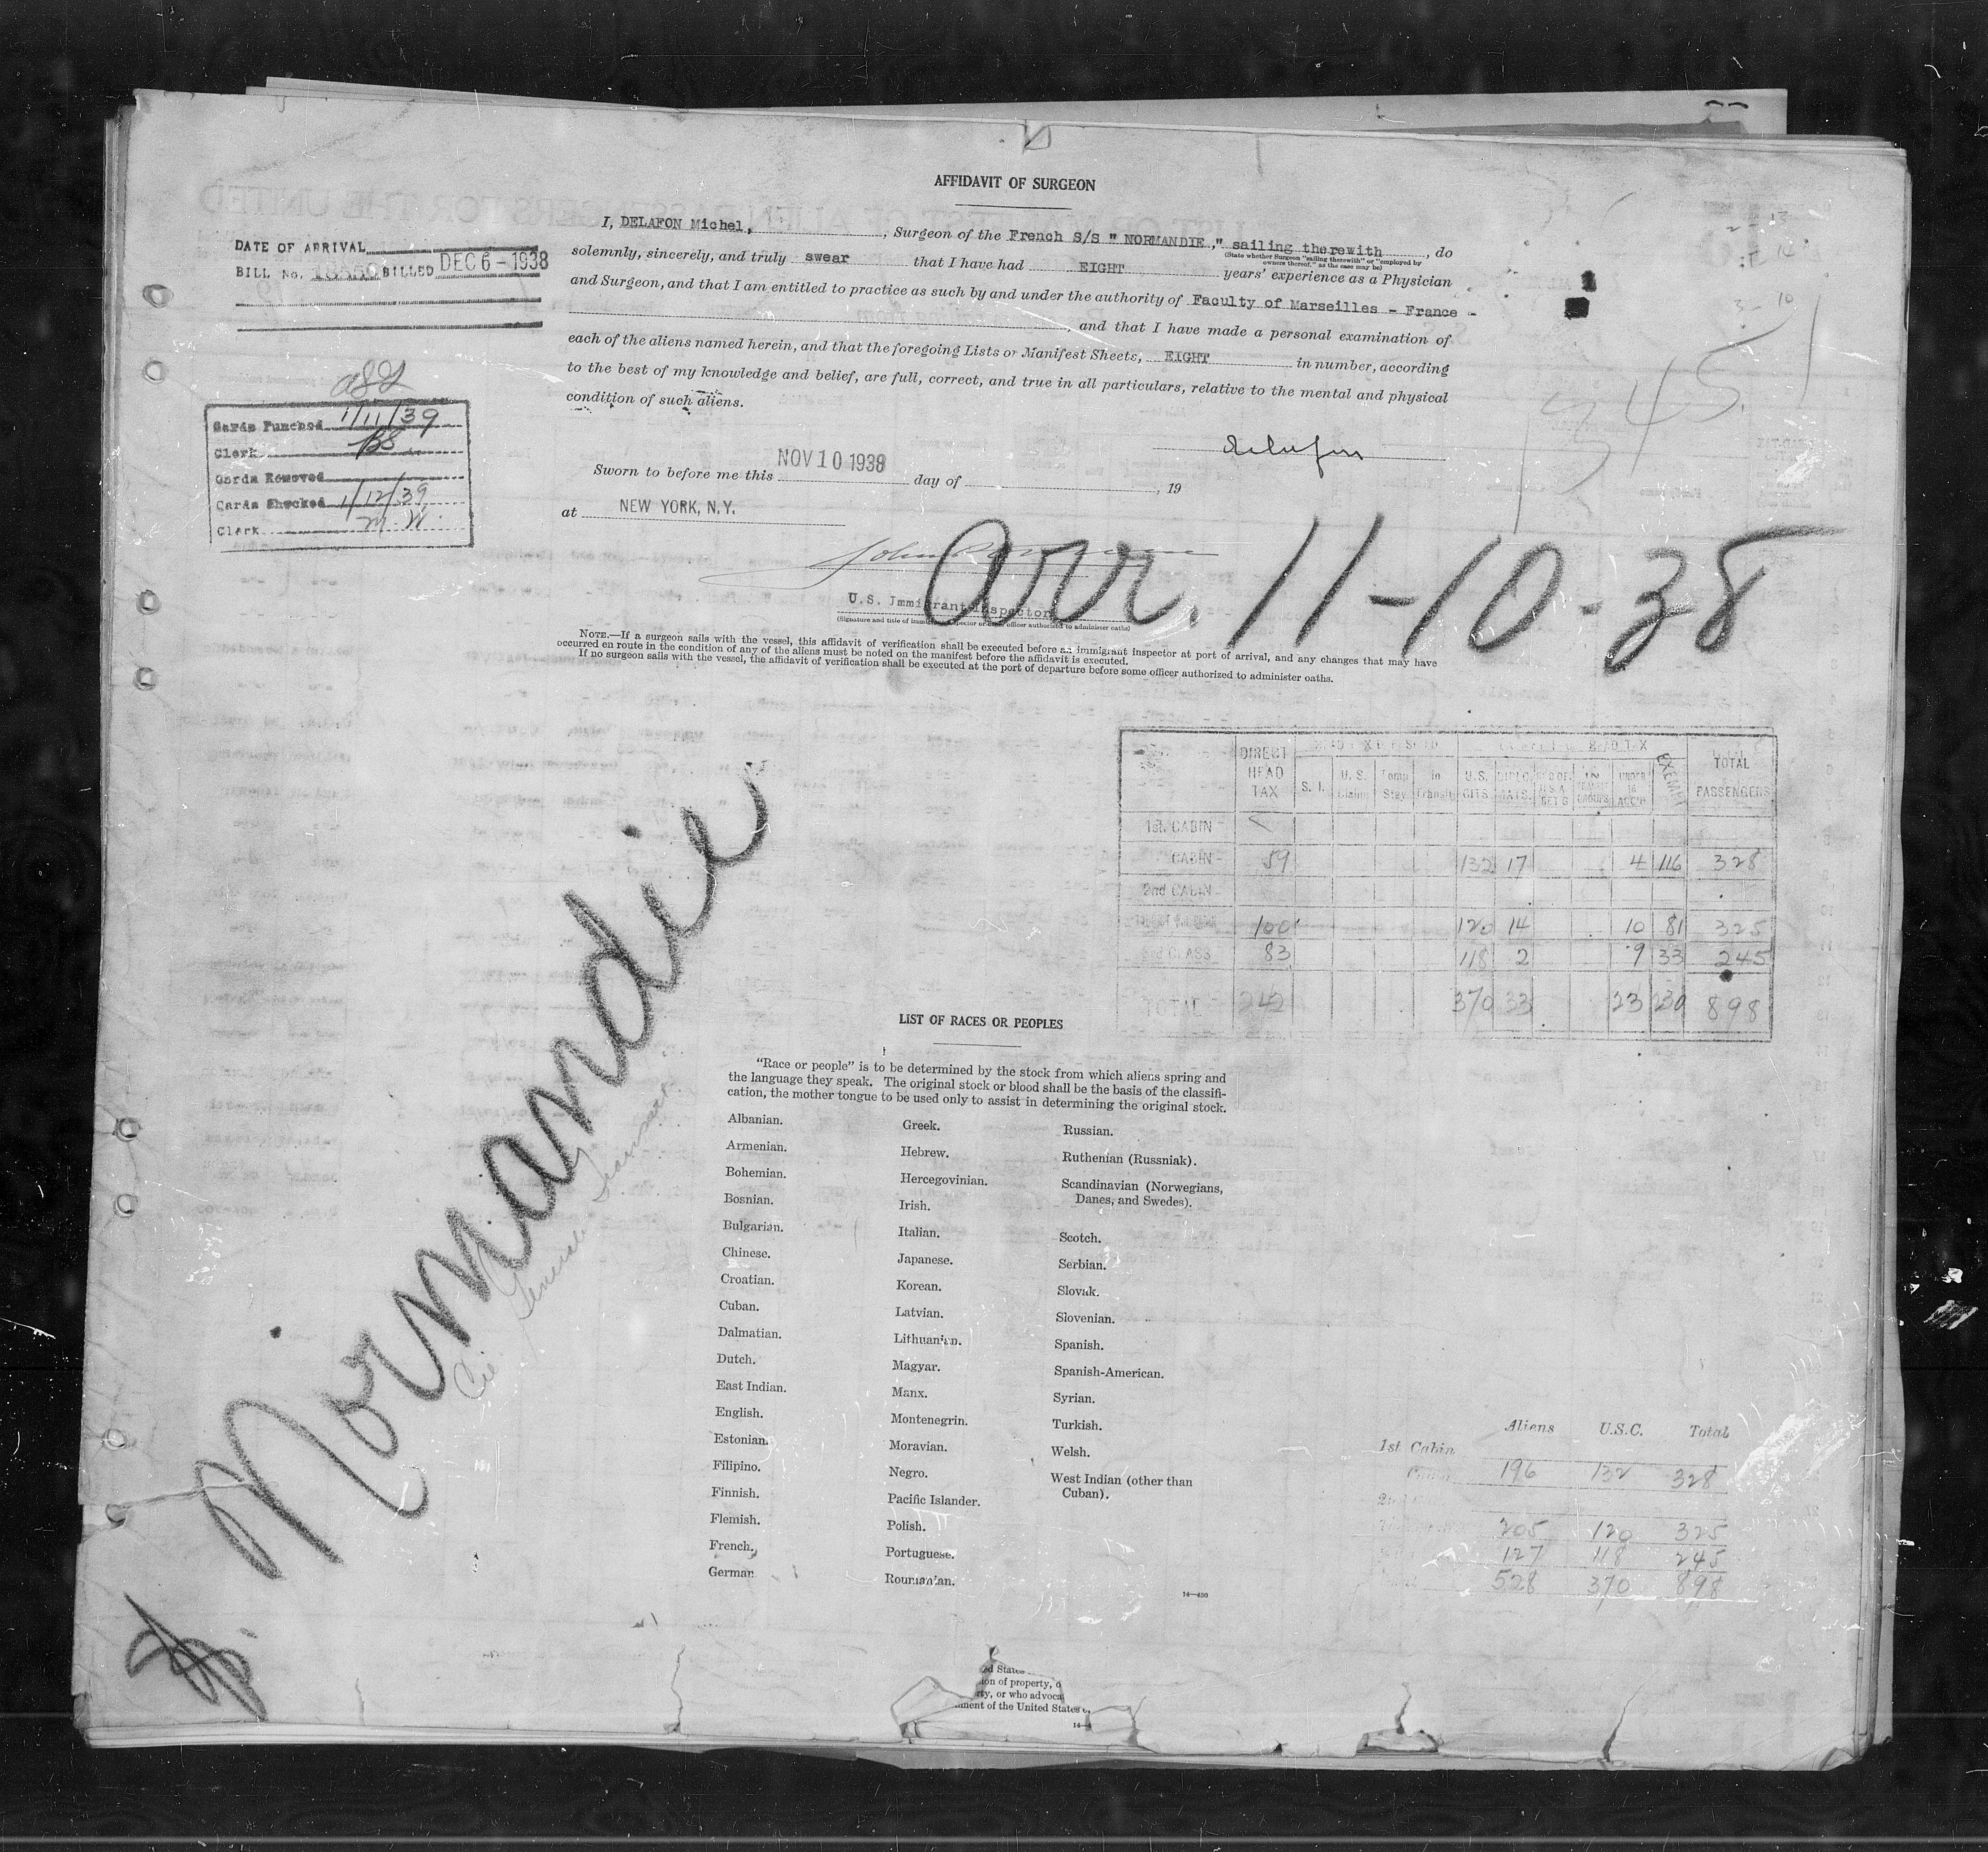 AFFIDAVIT OF SURGEON
I, DELAFON Michel, , Surgeon of the French S/S " NORMANDIE ," sailing therewith , do
(State whether Surgeon "sailing therewith" or "employed by
owners thereof," as the case may be)
solemnly, sincerely, and truly swear that I have had EIGHT years' experience as a Physician
and Surgeon, and that I am entitled to practice as such by and under the authority of Faculty of Marseilles - France -
, and that I have made a personal examination of
each of the aliens named herein, and that the foregoing Lists or Manifest Sheets, EIGHT in number, according
to the best of my knowledge and belief, are full, correct, and true in all particulars, relative to the mental and physical
condition of such aliens.
DATE OF ARRIVAL
BILL No. BILLED DEC 6 - 1938
Cards Punched 1/11/39
Clerk BS
Cards Removed
Cards Checked 1/12/39
Clerk M.W.
345
delafon
Sworn to before me this NOV 10 1938 day of , 19
at NEW YORK, N.Y.
John
U.S. Immigrant Inspector
(Signature and title of immigrant inspector or other officer authorized to administer oaths)
arr. 11-10-38
NOTE.—If a surgeon sails with the vessel, this affidavit of verification shall be executed before an immigrant inspector at port of arrival, and any changes that may have
occurred en route in the condition of any of the aliens must be noted on the manifest before the affidavit is executed.
If no surgeon sails with the vessel, the affidavit of verification shall be executed at the port of departure before some officer authorized to administer oaths.
DIRECT HEAD TAX S. I. U. S. Claims Temp Stay In Transit U.S. CITS. DIPLO MATS. UNDER 16 ACC'P EXEMPT TOTAL PASSENGERS
1st. CABIN
CABIN 59 132 17 4 116 328
2nd CABIN
100 120 14 10 81 325
3rd CLASS 83 118 2 9 33 245
TOTAL 242 370 33 23 230 898
Normandie
Cie Generale Transatl.
LIST OF RACES OR PEOPLES
"Race or people" is to be determined by the stock from which aliens spring and
the language they speak. The original stock or blood shall be the basis of the classifi-
cation, the mother tongue to be used only to assist in determining the original stock.
Albanian.
Armenian.
Bohemian.
Bosnian.
Bulgarian.
Chinese.
Croatian.
Cuban.
Dalmatian.
Dutch.
East Indian.
English.
Estonian.
Filipino.
Finnish.
Flemish.
French.
German
Greek.
Hebrew.
Hercegovinian.
Irish.
Italian.
Japanese.
Korean.
Latvian.
Lithuanian.
Magyar.
Manx.
Montenegrin.
Moravian.
Negro.
Pacific Islander.
Polish.
Portuguese.
Roumanian.
Russian.
Ruthenian (Russniak).
Scandinavian (Norwegians,
Danes, and Swedes).
Scotch.
Serbian.
Slovak.
Slovenian.
Spanish.
Spanish-American.
Syrian.
Turkish.
Welsh.
West Indian (other than
Cuban).
14—430
Aliens U.S.C. Total
1st Cabin
Cabin 196 132 328
2nd
205 120 325
127 118 245
528 370 898
ed States
ion of property, o
rty, or who advoca
ment of the United States